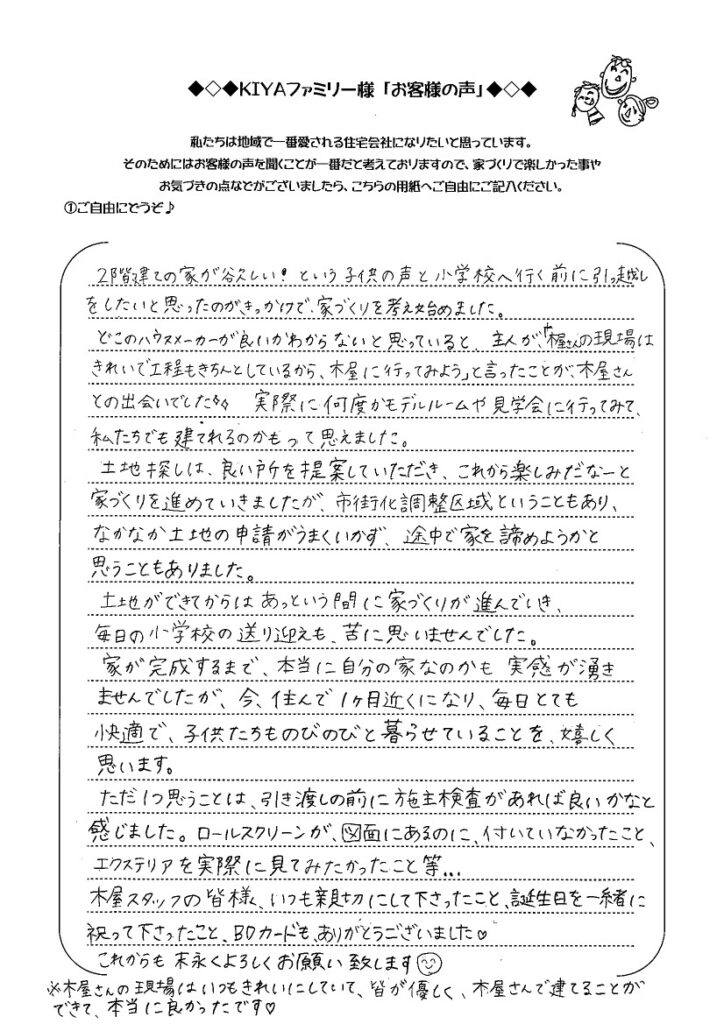 ◆◇◆KIYAファミリー様「お客様の声」◆◇◆
私たちは地域で一番愛される住宅会社になりたいと思っています。
そのためにはお客様の声を聞くことが一番だと考えておりますので、家づくりで楽しかった事や
お気づきの点などがございましたら、こちらの用紙へご自由にご記入ください。
①ご自由にどうぞ♪
2階建ての家が欲しい！という子供の声と小学校へ行く前に引っ越し
をしたいと思ったのがきっかけで、家づくりを考え始めました。
どこのハウスメーカーが良いかわからないと思っていると、主人が、「木屋さんの現場は
きれいで工程もきちんとしているから、木屋に行ってみよう」と言ったことが、木屋さん
との出会いでした 実際に何度かモデルルームや見学会に行ってみて、
私たちでも建てれるのかもって思えました。
土地探しは、良い所を提案していただき、これから楽しみだなーと
家づくりを進めていきましたが、市街化調整区域ということもあり、
なかなか土地の申請がうまくいかず、途中で家を諦めようかと
思うこともありました。
土地ができてからはあっという間に家づくりが進んでいき、
毎日の小学校の送り迎えも、苦に思いませんでした。
家が完成するまで、本当に自分の家なのかも実感が湧き
ませんでしたが、今、住んで1ヶ月近くになり、毎日とても
快適で、子供たちものびのびと暮らせていることを、嬉しく
思います。
ただ1つ思うことは、引き渡しの前に施主検査があれば良いかなと
感じました。ロールスクリーンが、図面にあるのに、付いていなかったこと、
エクステリアを実際に見てみたかったこと等...
木屋スタッフの皆様、いつも親切にして下さったこと、誕生日を一緒に
祝って下さったこと、BDカードも、ありがとうございました♡
これからも末永くよろしくお願い致します☺
※木屋さんの現場はいつもきれいにしていて、皆が優しく、木屋さんで建てることが
できて、本当に良かったです♡